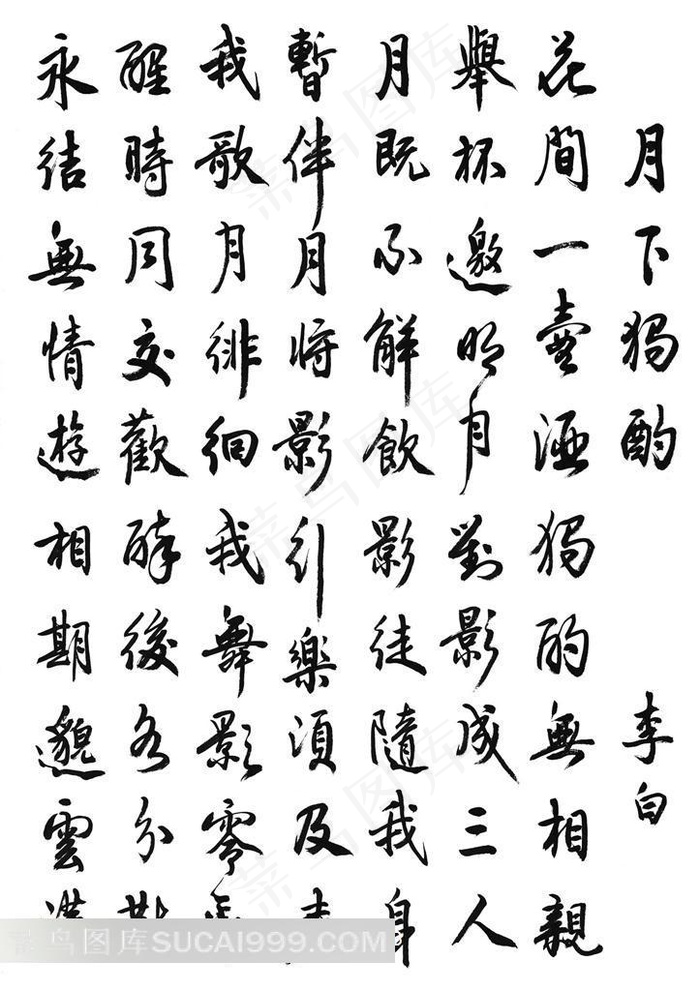 月下獨酌 李白
花間一壺酒獨酌無相親
舉杯邀明月對影成三人
月既不解飲影徒隨我身
暫伴月將影行樂須及
我歌月徘徊我舞影零
醒時同交歡醉後各分
永結無情遊相期邈雲
菜鸟图库SUCAI999.COM